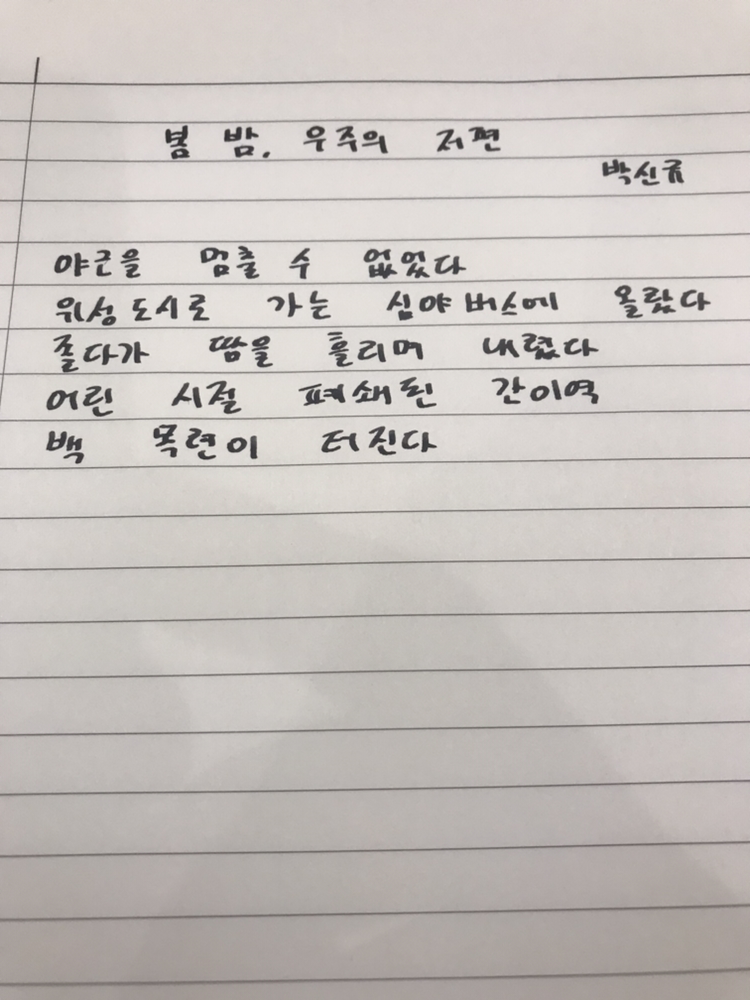 봄 밤. 우주의 저편
박신규
야근을 멈출 수 없었다
위성도시로 가는 심야버스에 올랐다
졸다가 땀을 흘리며 내렸다
어린 시절 폐쇄된 간이역
백 목련이 터진다